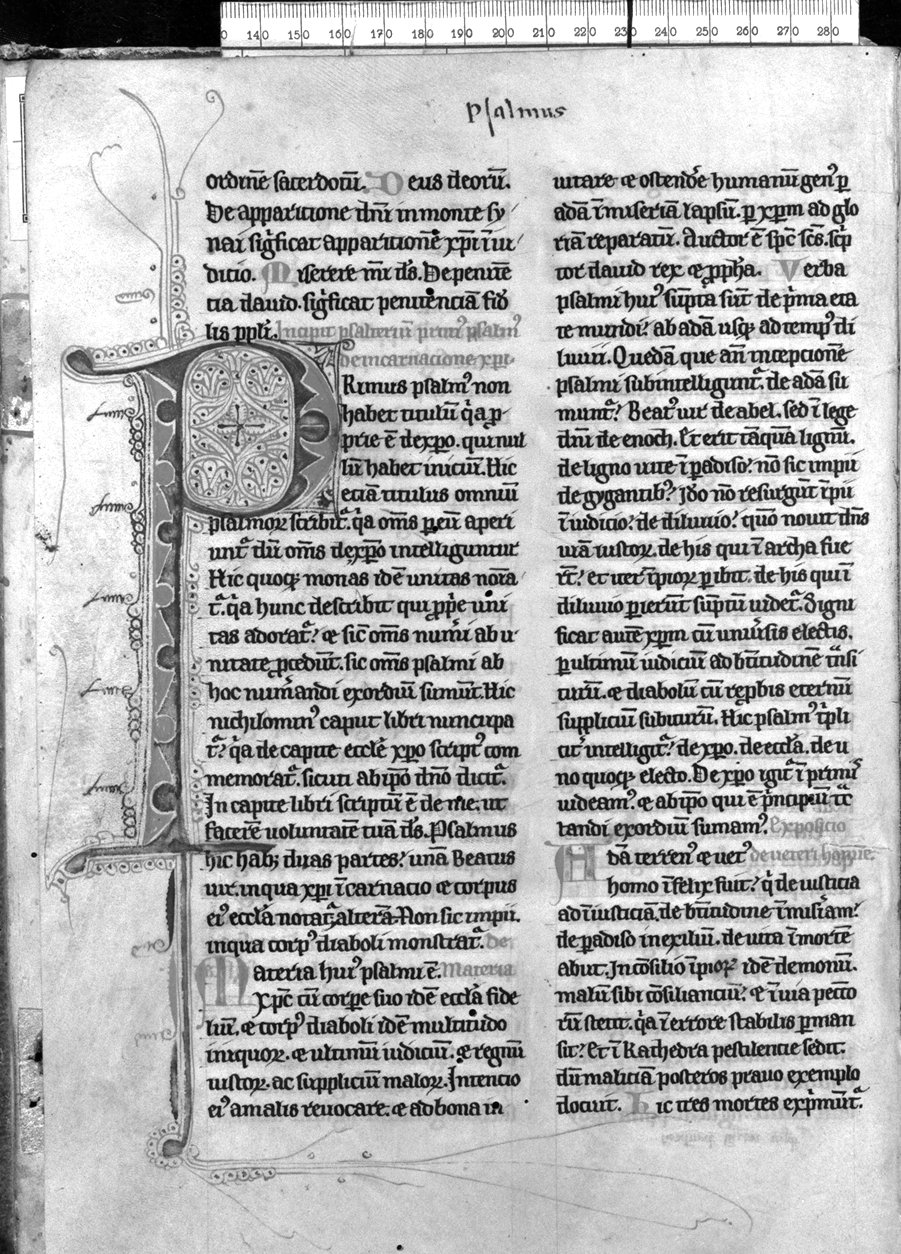 Psalmus
ordinē sacerdotū. Deus deoꝝ.
De apparitione dn̄i in monte sy
nai sig̾ficat apparitionē xp̄i ī iu
dicio. Miserere mī ds̄. De penitē
tia dauid. sig̾ficat penitenciā fid̾
lis ppl̾i. Incipit psalteriū primꝰ psalmꝰ
de incarnacione xp̄i.
RImus psalmꝰ non
habet titulū q̾a p̱
prie ē de xp̄o. qui nul
lū habet iniciū. Hic
eciā titulus omniū
psalmoꝝ scribit̾. q̾a om̄s ꝑ eū aperi
unt̾ dū om̄s de xp̄o intelliguntur
Hic quoqꝫ monas idē unitas nota
t̾. q̾a hunc describit qui ꝓp̄e uni
tas adorat̾? ⁊ sic om̄s num̾i ab u
nitate ꝓcedūt. sic om̄s psalmi ab
hoc num̾andi exordiū sumūt. Hic
nichilominꝰ caput libri nuncupa
t̾? q̾a de capite eccl̄e xp̄o scriptꝰ com
memorat̾. sicuti ab ip̄o dn̄o dicit̾.
In capite libri scriptū ē de me. ut
facerē uoluntatē tuā ds̄. Psalmus
hic habꝫ duas partes? unā Beatus
uir. in qua xp̄i īcarnacio ⁊ corpus
eiꝰ eccl̄a notat̾. alterā. Non sic impii.
in qua corpꝰ diaboli monstrat̾. de
Materia huiꝰ psalmi ē. Materia
xp̄c cū corꝑe suo idē eccl̄a fide
liū. ⁊ corpꝰ diaboli idē multitudo
iniquoꝝ. ⁊ ultimū iudiciū. ⁊ regnū
iustoꝝ. ac suppliciū maloꝝ. Intencio
eiꝰ a malis reuocare. ⁊ ad bona in
uitare ⁊ ostend̾e humanū genꝰ ꝑ
adā ī miseriā lapsū. ꝑ xp̄m ad glo
riā reparatū. Auctor ē sp̄c sc̄s. sc̾p
tor dauid rex ⁊ ꝓph̄a. Verba
psalmi huiꝰ sūpta sūt de p̾ma eta
te mundi? ab adā usqꝫ ad tempꝰ di
luuii. Quedā que an̄ incepcionē
psalmi subintelligunt̾. de adā su
munt̾? Beatꝰ uir de abel. sed ī lege
dn̄i de enoch. Et erit tāquā lignū.
de ligno uite ī ꝑadiso? nō sic impii
de gygantibꝫ? Id̾o nō resurgūt īpii
ī iudicio? de diluuio? quō nouit dn̄s
uiā iustoꝝ. de his qui ī archa fue
rt̄? et iter īpioꝝ ꝑibit. de his qui ī
diluuio ꝑierūt sūptū uidet̾. Signi
ficat autē xp̄m cū uniu̾sis electis.
ꝑ ultimū iudiciū ad bt̄itudinē t̾nsi
turū. ⁊ diabolū cū reꝓbis eternū
suppliciū subiturū. Hic psalmꝰ t̾pli
cit̾ intelligit̾? de xp̄o. de eccl̄a. de u
no quoqꝫ electo. De xp̄o igit̾ ī primꝭ
uideamꝰ. ⁊ ab ip̄o qui ē p̾ncipiū t̾c
tandi exordiū sumamꝰ. Expositio
Adā terrenꝰ ⁊ uetꝰ de ueteri homīe.
homo īfelix fuit? q̾ de iusticia
ad īiusticiā. de bt̄itudine ī mis̾iam?
de ꝑadiso in exiliū. de uita ī mortē
abiit. In cōsilio īpioꝝ idē demonū.
malū sibi cōsilianciū? ⁊ ī uia pecc̄o
rū stetit. q̾a ī errore stabilis ꝑman
sit? Et ī Kathedra pestilentie sedit.
dū maliciā posteros prauo exemplo
docuit. Hic tres mortes exp̾mūt̾.